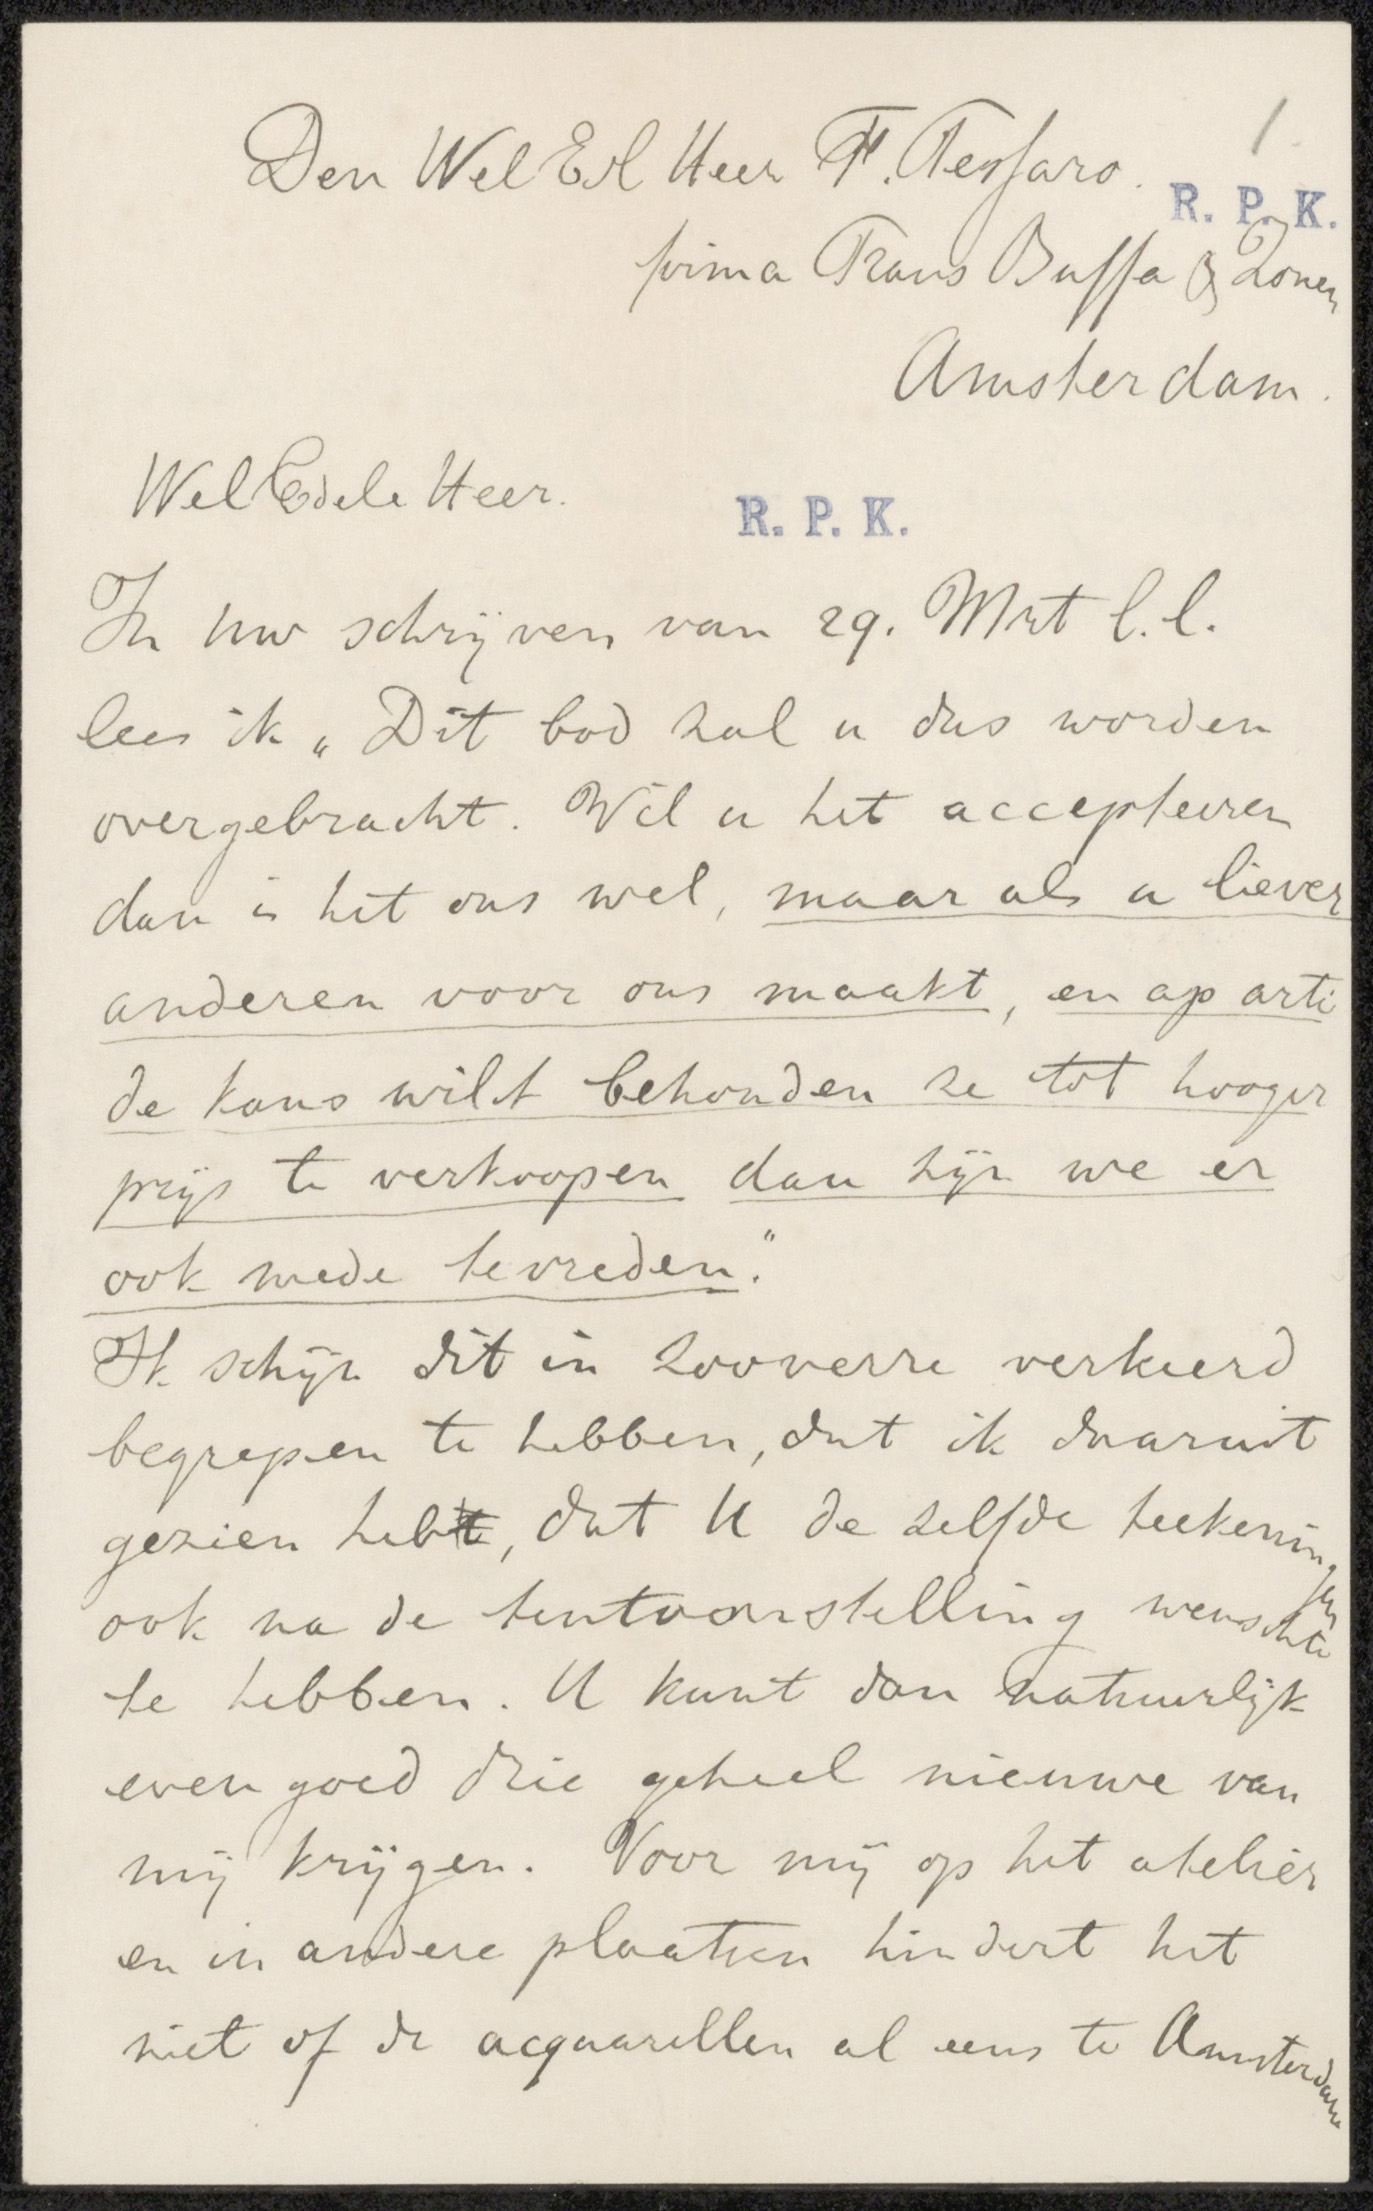 1
Den Wel Ed Heer F. Tessaro.
R. P. K.
firma Frans Buffa & Zonen
Amsterdam.
Wel Edele Heer.
R. P. K.
In uw schrijven van 29. Mrt l.l.
lees ik „Dit bod zal u dus worden
overgebracht. Wil u het accepteeren
dan is het ons wel, maar als u liever
anderen voor ons maakt, en op arti
de kans wilt behouden ze tot hooger
prijs te verkoopen dan zijn we er
ook mede tevreden."
Ik schijn dit in zooverre verkeerd
begrepen te hebben, dat ik daaruit
gezien heb, dat U de zelfde teekeningen
ook na de tentoonstelling wenschte
te hebben. U kunt dan natuurlijk
even goed drie geheel nieuwe van
mij krijgen. Voor mij op het atelier
en in andere plaatsen hindert het
niet of de acquarellen al eens te Amsterdam